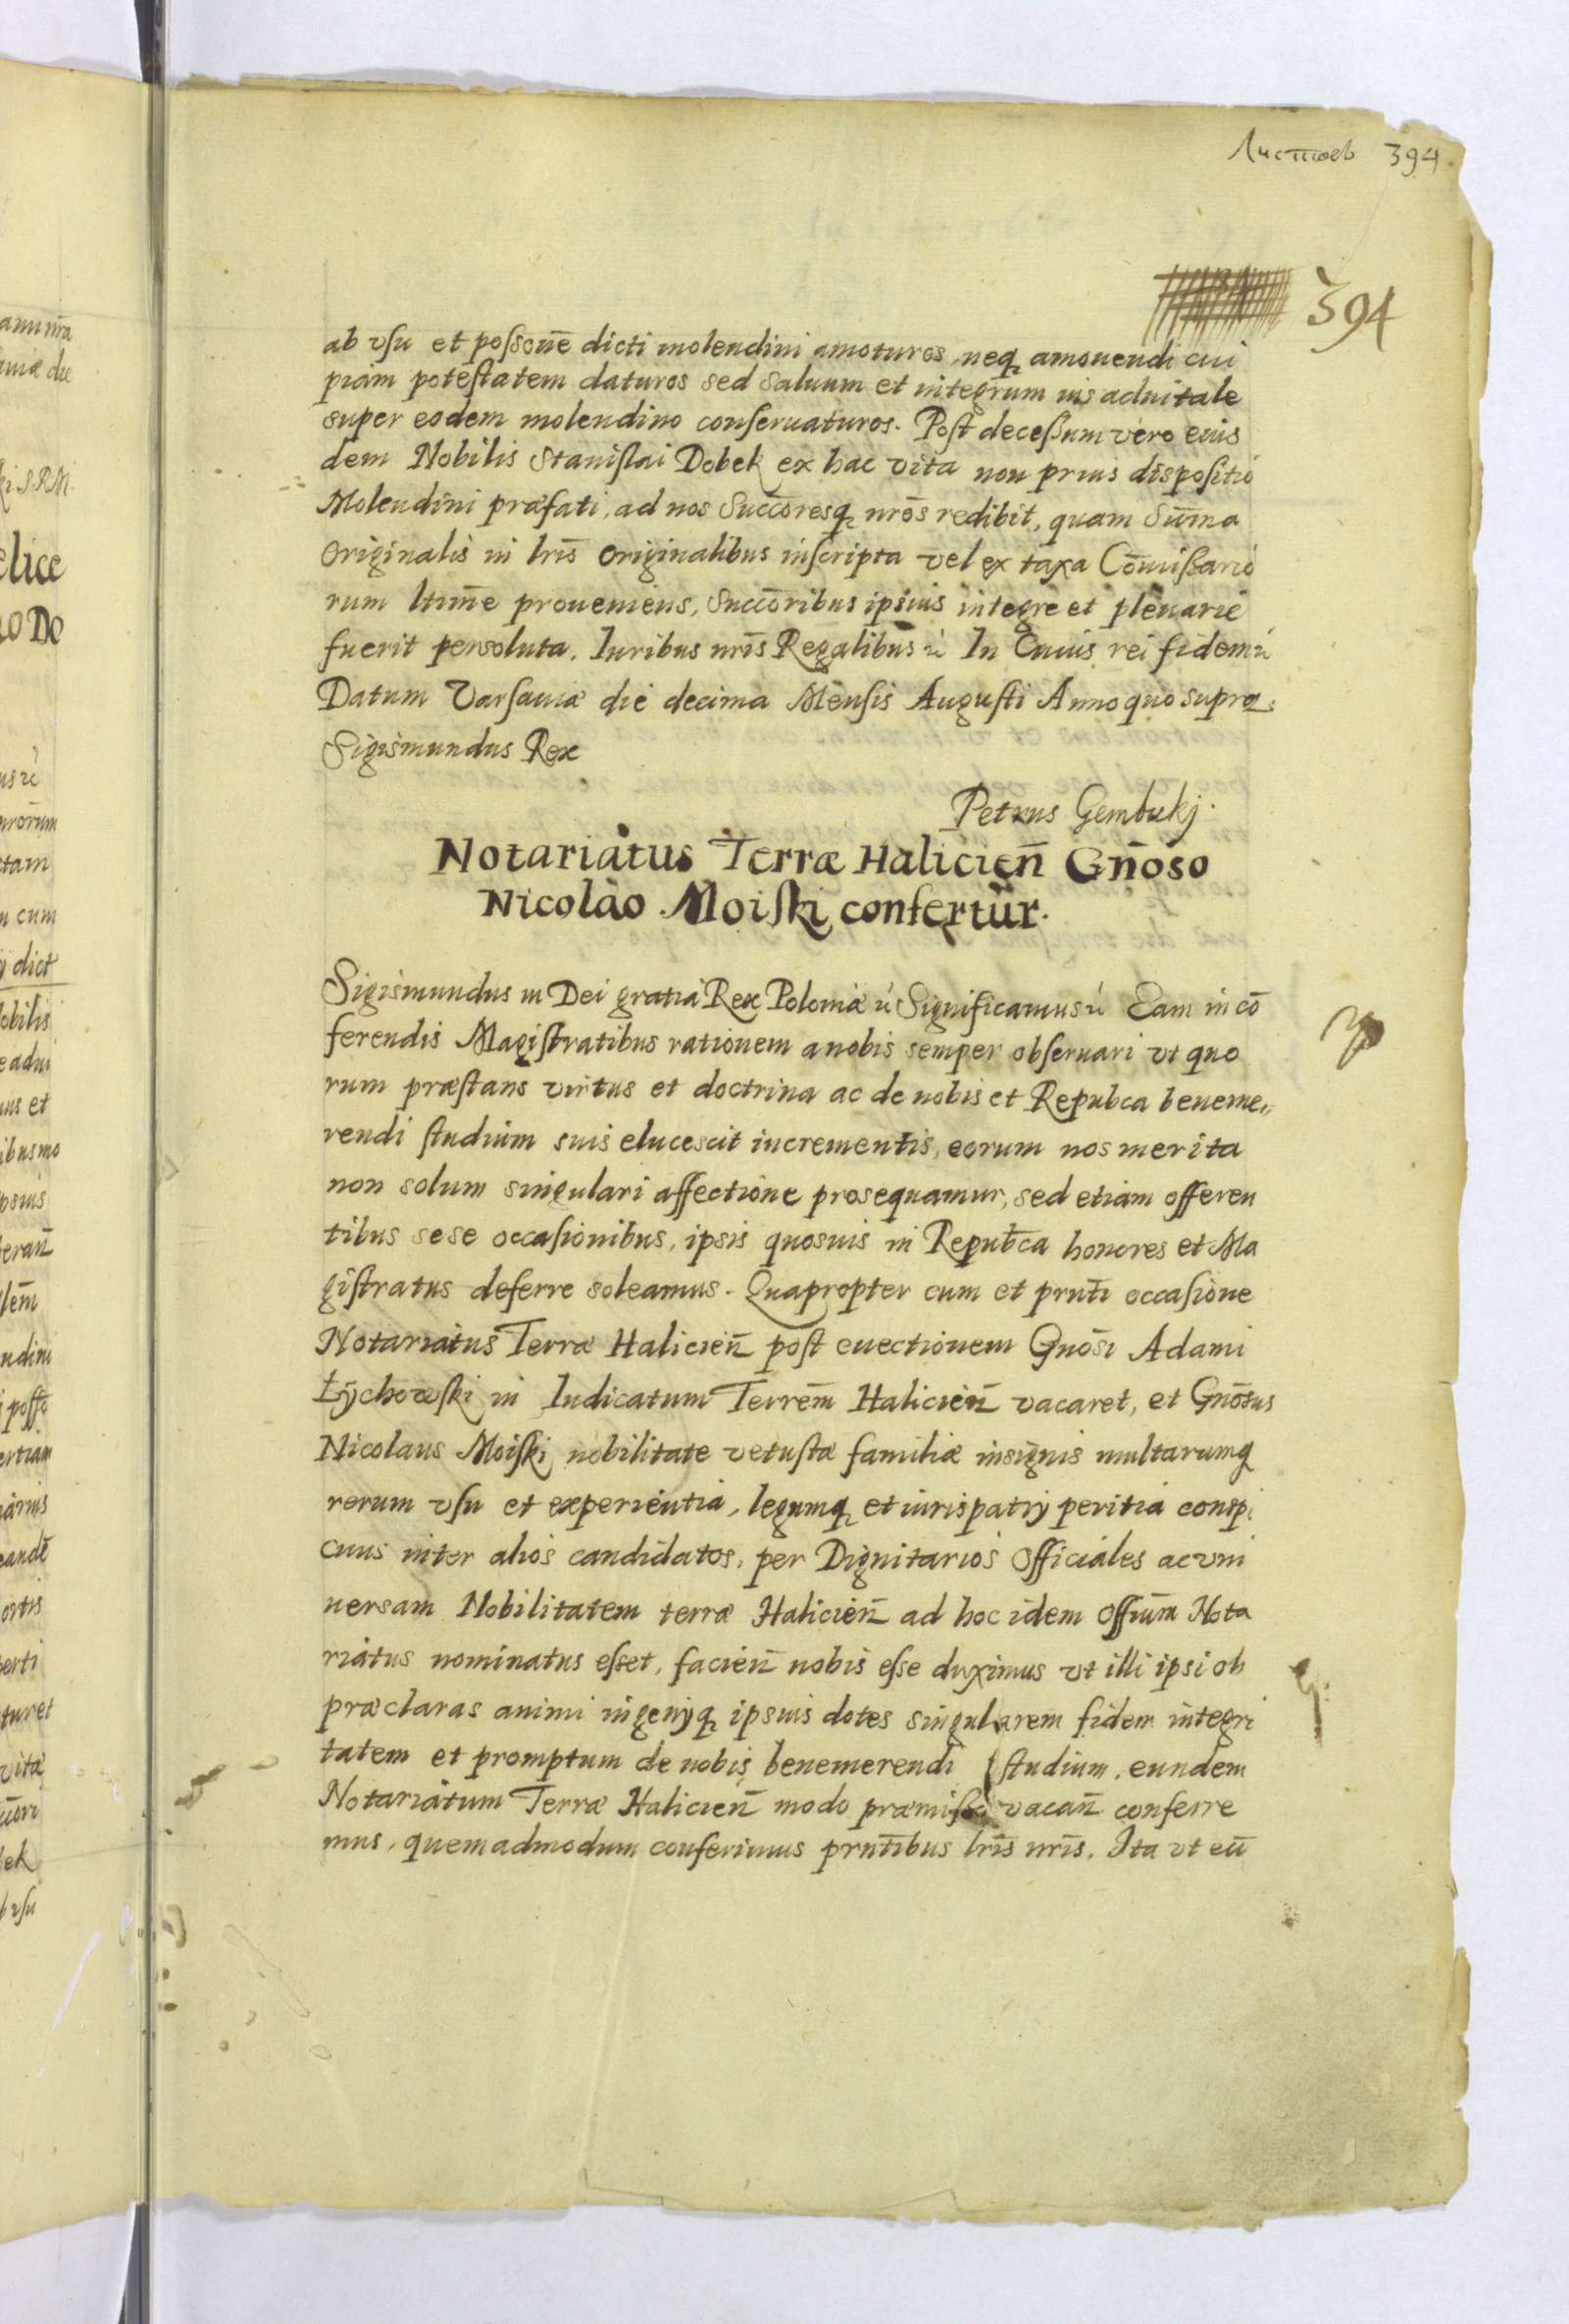 Листовъ 394
394
ab vsu et possōne dicti molendini amoturos neq amouendi cui
piam potestatem daturos sed saluum et integrum ius aduitale
super eodem molendino conseruaturos. Post decessum vero eius
dem Nobilis Stanislai Dobek ex hac vita non prius dispositio
Molendini præfati, ad nos Succoresq nrōs redibit, quam Sum̄a
Originalis in lrīs Originalibus inscripta vel ex taxa Com̄issario
rum ltim̄e proueniens, Succoribus ipsius integre et plenarie
fuerit persoluta. Iuribus nrīs Regalibus ꝛc̄ In Cuius rei fidem ꝛc̄
Datum Varsauiæ die decima Mensis Augusti Anno quo supra.
Sigismundus Rex
Petrus Gembukj.
Notariatus Terræ Halicien̄ Gn̄oso
Nicolao Moiski confertur.
Sigismundus III Dei gratia Rex Poloniæ ꝛc̄ Significamus ꝛc̄ Eam in cō
ferendis Magistratibus rationem a nobis semper obseruari vt quo
rum præstans virtus et doctrina ac de nobis et Repubca beneme,,
rendi studium suis elucescit incrementis, eorum nos merita
non solum singulari affectione prosequamur, sed etiam offeren
tibus sese occasionibus, ipsis quosuis in Repub̄ca honores et Ma
gistratus deferre soleamus. Quapropter cum et prn̄ti occasione
Notariatus Terræ Halicien̄ post euectionem Gnōsi Adami
Łÿchowski in Iudicatum Terrēm Halicien̄ vacaret, et Gnōsus
Nicolaus Moiski nobilitate vetustæ familiæ insignis multarumq
rerum vsu et experientia, legumq et iuris patrij peritia conspi
cuus inter alios candidatos, per Dignitarios Officiales ac vni
uersam Nobilitatem terræ Halicien̄ ad hoc idem Offiūm Nota
riatus nominatus esset, facien̄ nobis esse duximus vt illi ipsi ob
præclaras animi ingenijq ipsius dotes singularem fidem integri
tatem et promptum de nobis benemerendi studium, eundem
Notariatum Terræ Halicien̄ modo præmisso vacan̄ conferre
mus, quemadmodum conferimus prn̄tibus lrīs nrīs. Ita vt eū